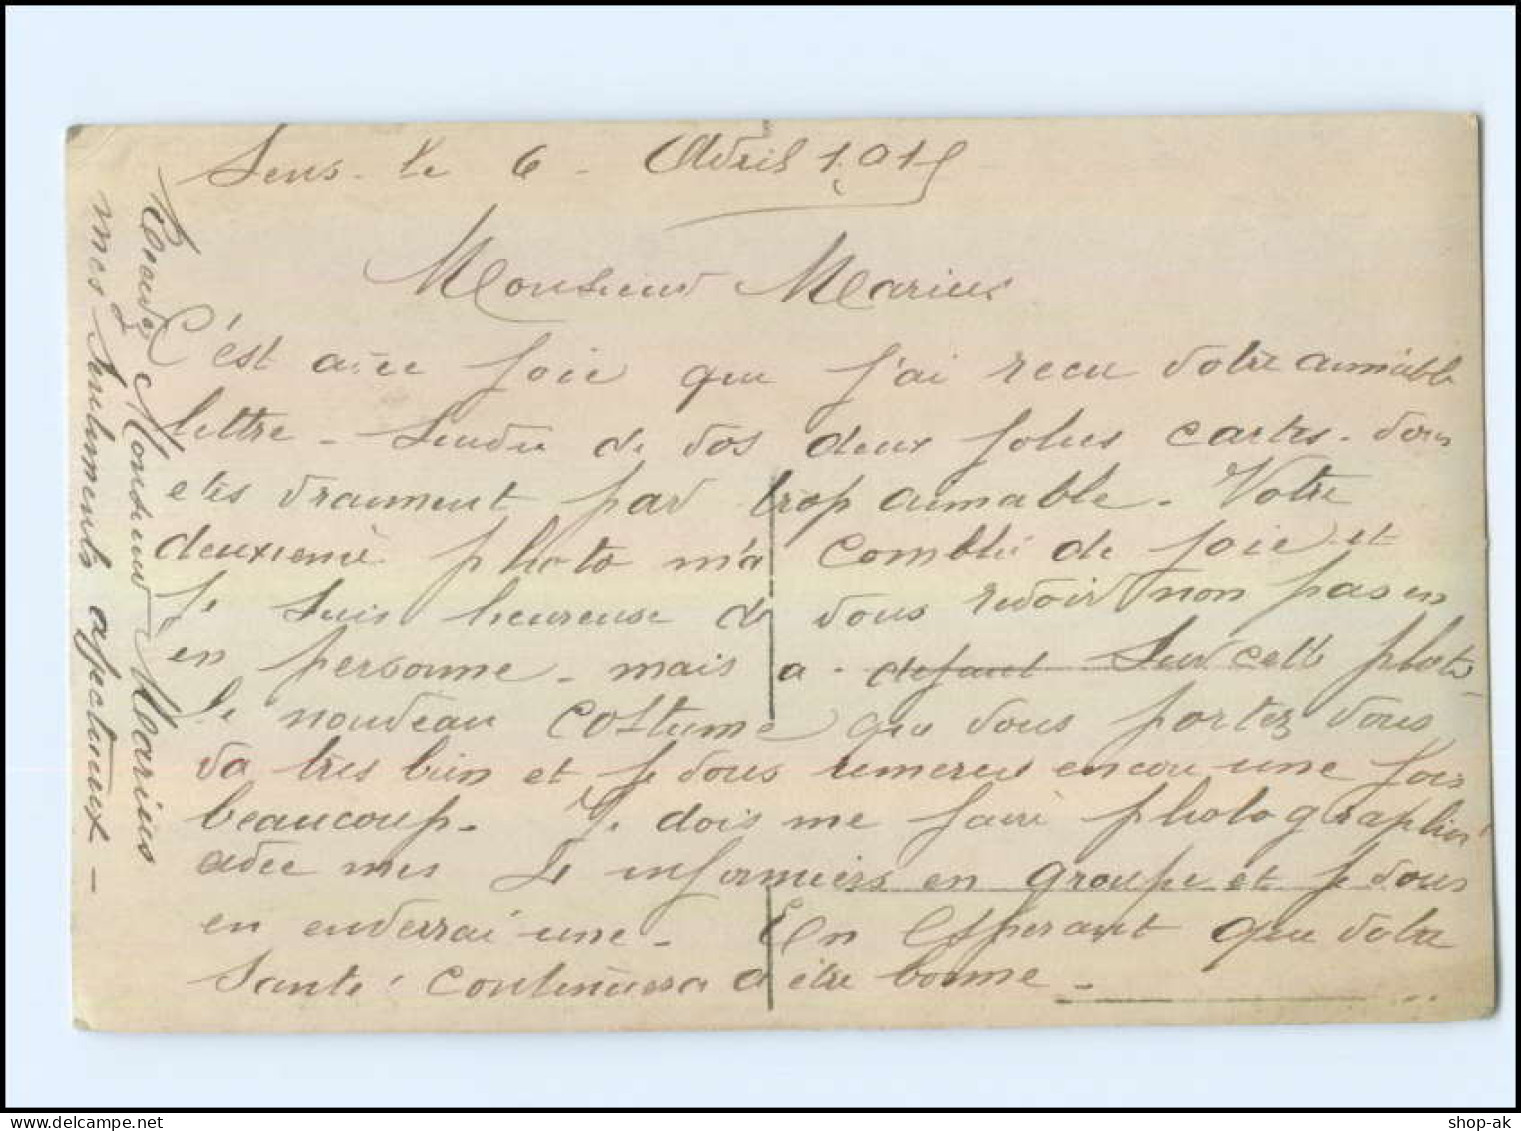 Sens. le 6 - Avril 1915
Monsieur Marius
C'est avec joie que j'ai recu votre aimable
lettre - de vos deux jolies cartes. vous
etes vraiment par trop aimable. Votre
deuxieme photo m'a comblé de joie et
Je suis heureuse de vous revoir non pas en
en personne - mais a - defaut Sur cette photo -
le nouveau costume que vous portez vous
va tres bien et je vous remercie encore une fois
beaucoup. Je dois me faire photographier
avec mes infirmiers en groupe et je vous
en enverrai une. En esperant que votre
Santé continuera a être bonne -
Recevez Monsieur Marius
mes Sentiments affectueux -
shop-ak